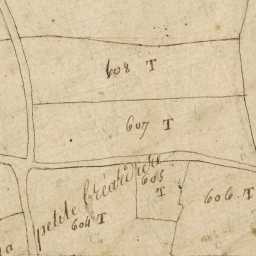 608 T
607 T
605
T
606 T
604 T
petite